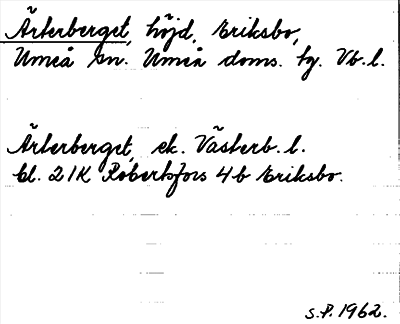 Ärterberget, höjd, Eriksbo,
Umeå sn. Umeå doms. hg. Vb. l.
Ärterberget, ek. Västerb. l.
bl. 21K Robertsfors 4b Eriksbo.
S.P. 1962.